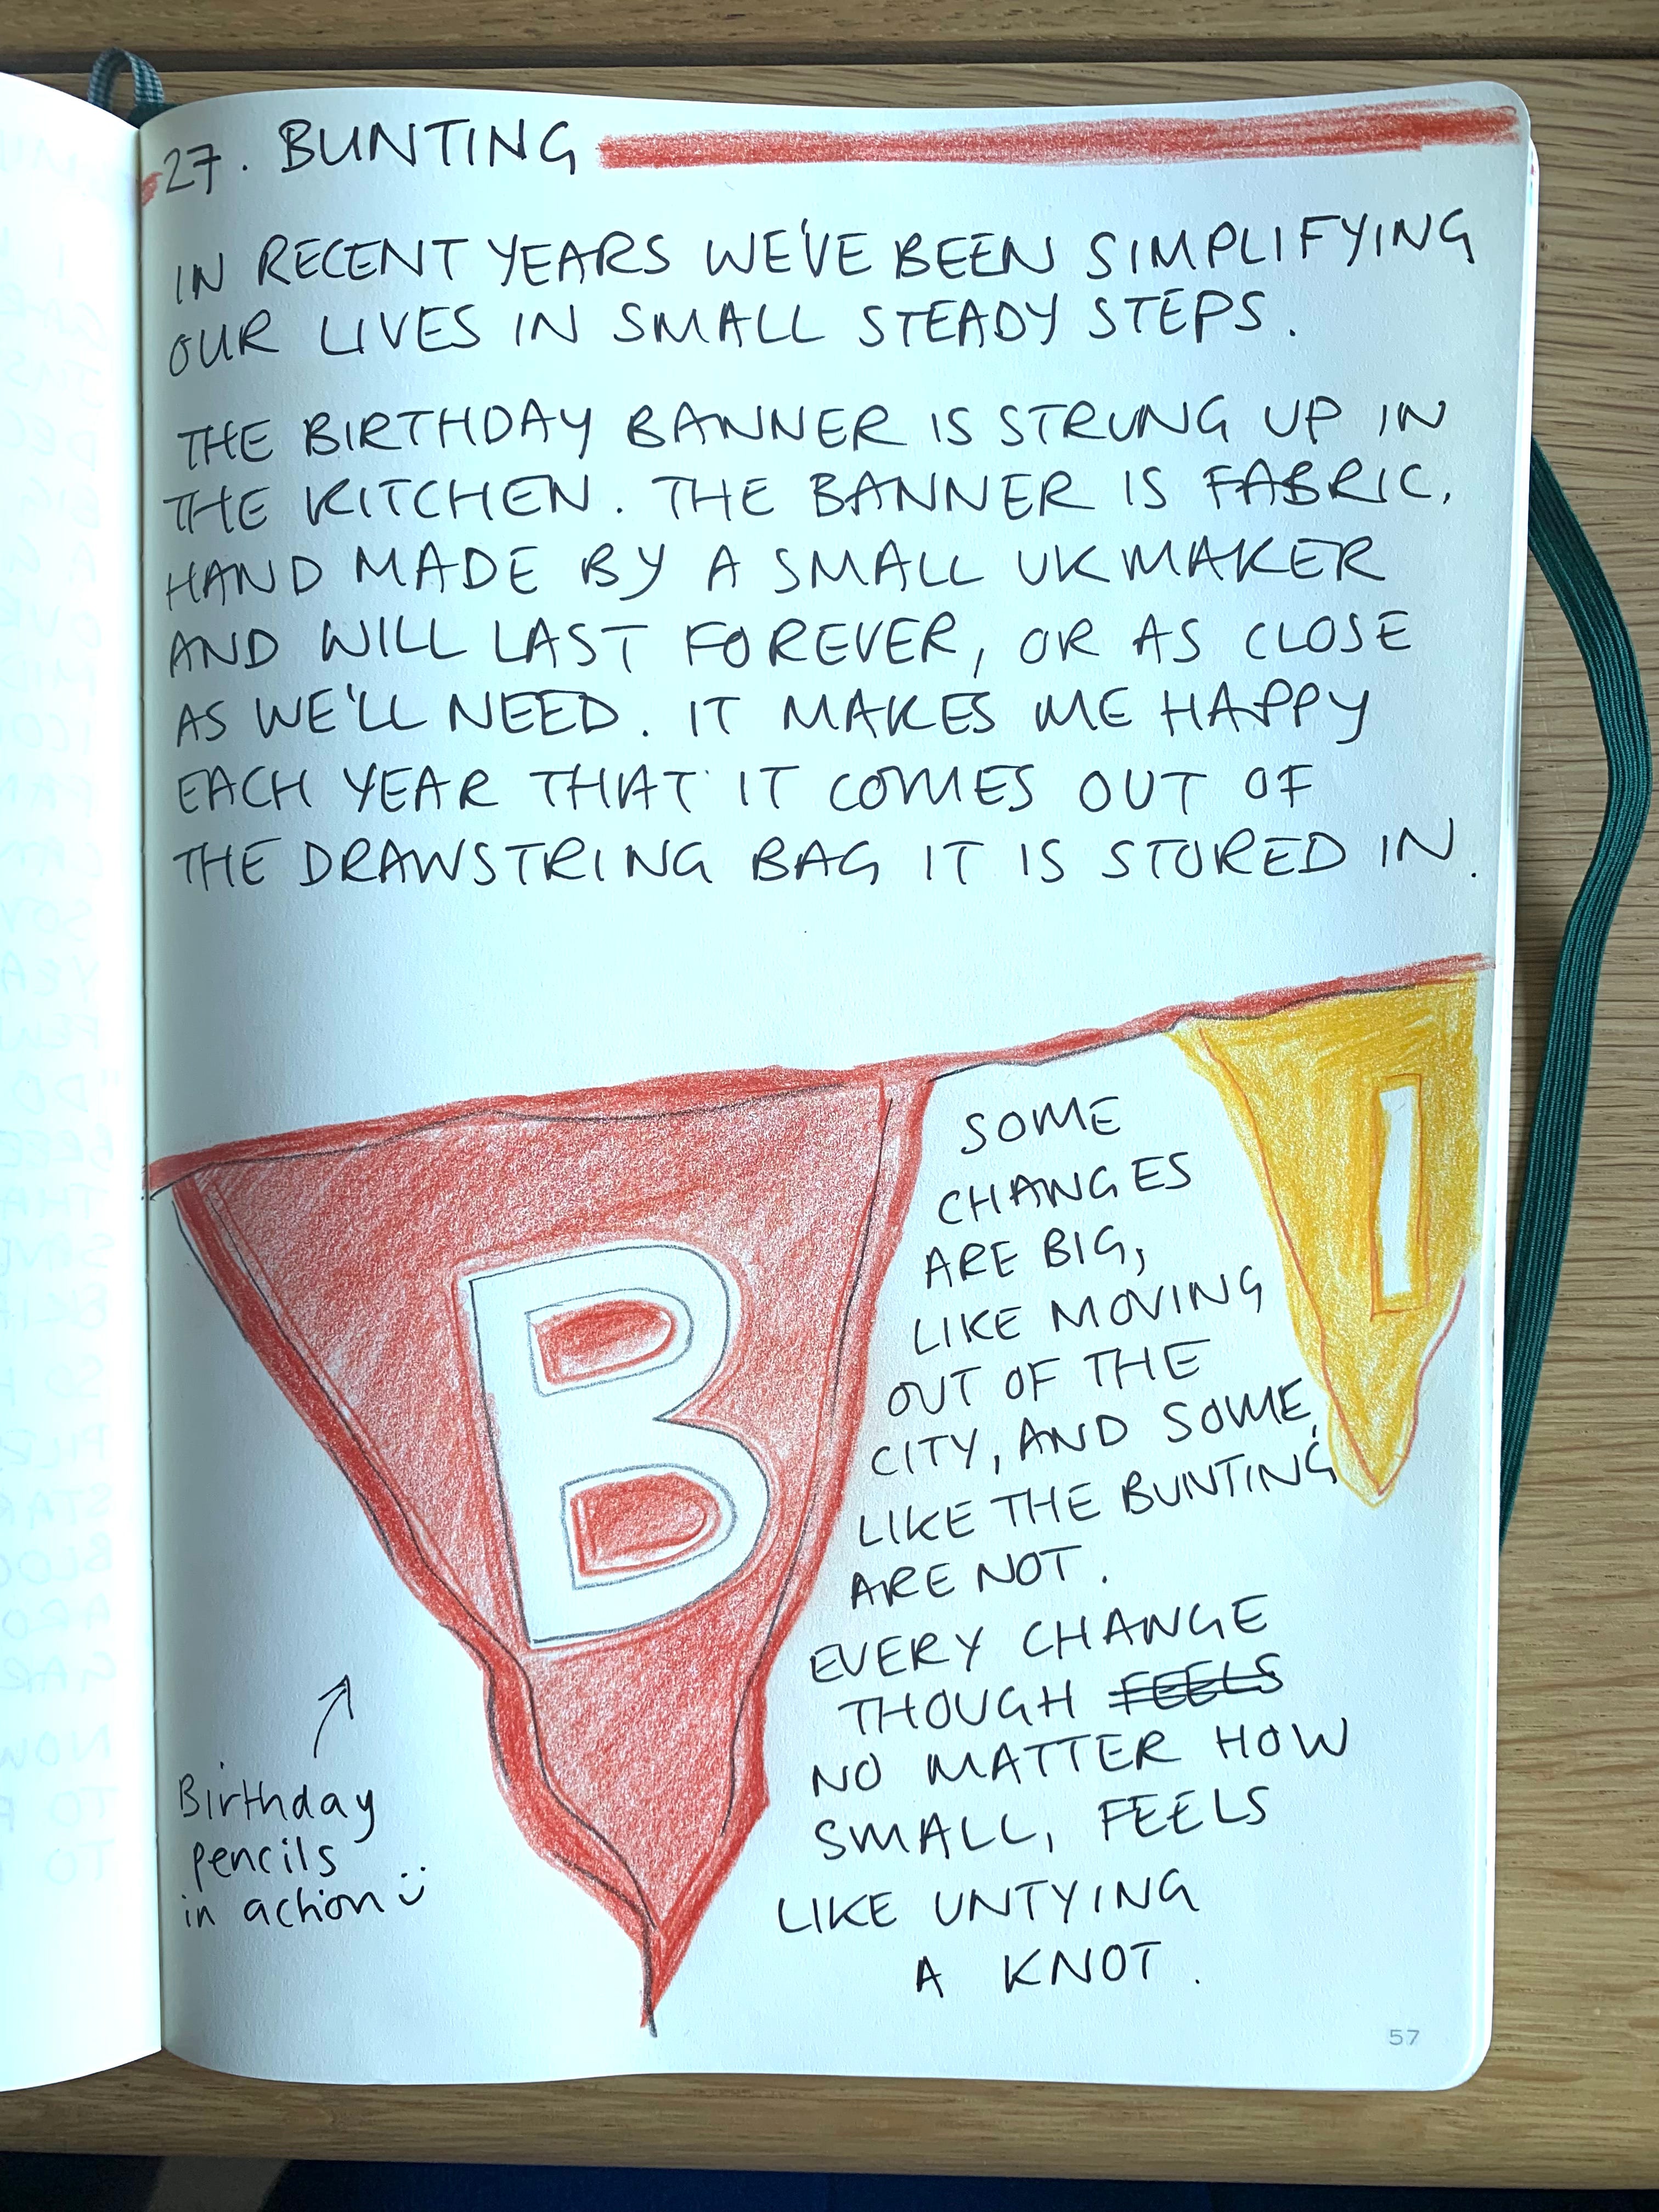 27. BUNTING
IN RECENT YEARS WE'VE BEEN SIMPLIFYING
OUR LIVES IN SMALL STEADY STEPS.
THE BIRTHDAY BANNER IS STRUNG UP IN
THE KITCHEN. THE BANNER IS FABRIC,
HAND MADE BY A SMALL UK MAKER
AND WILL LAST FOREVER, OR AS CLOSE
AS WE'LL NEED. IT MAKES ME HAPPY
EACH YEAR THAT IT COMES OUT OF
THE DRAWSTRING BAG IT IS STORED IN.
B
I
SOME
CHANGES
ARE BIG,
LIKE MOVING
OUT OF THE
CITY, AND SOME,
LIKE THE BUNTING
ARE NOT.
EVERY CHANGE
THOUGH FEELS
NO MATTER HOW
SMALL, FEELS
LIKE UNTYING
A KNOT.
Birthday
pencils
in action
57